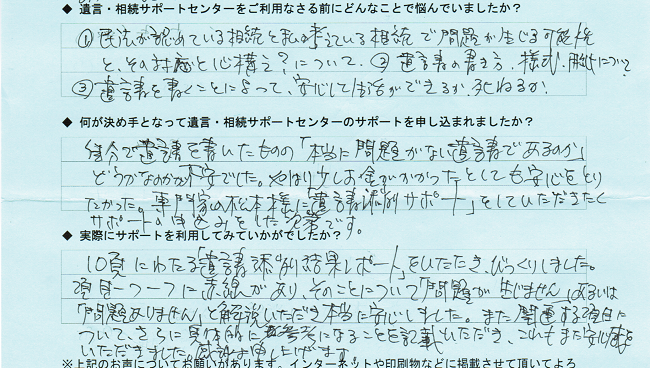 ◆ 遺言・相続サポートセンターをご利用なさる前にどんなことで悩んでいましたか?
①民法が認めている相続と私の考えている相続で問題が生じる可能性
と、その対応と心構え?について。②遺言書の書き方、様式、について
③遺言書を書くことによって、安心して生活ができるか、死ねるか。
◆ 何が決め手となって遺言・相続サポートセンターのサポートを申し込まれましたか?
自分で遺言書を書いたものの「本当に問題がない遺言書であるのか」
どうかなのか不安でした。やはり少しお金がかかったとしても安心をとり
たかった。専門家の松本様に「遺言添削サポート」をしていただきたく
サポートの申込みをした次第です。
◆ 実際にサポートを利用してみていかがでしたか?
10頁にわたる「遺言書添削結果レポート」をいただき、びっくりしました。
項目一つ一つに赤線があり、そのことについて「問題が生じません」あるいは
「問題ありません」と解説いただき本当に安心しました。また関連する項目に
ついて、さらに具体的に参考になることを記載いただき、これもまた安心感を
いただきました。感謝申し上げます
※上記のお声についてお願いがあります。インターネットや印刷物などに掲載させて頂いてよろ